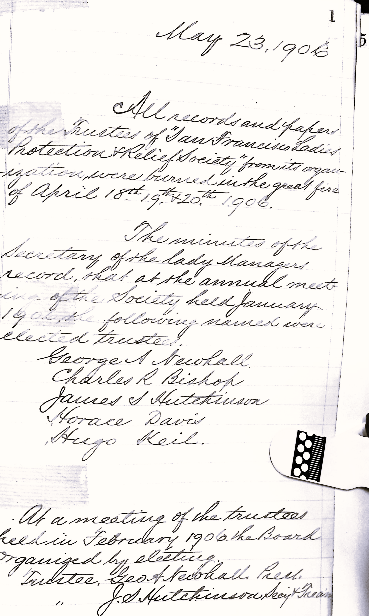 1
May 23, 1906
All records and papers
of the Trustees of "San Francisco Ladies
Protection & Relief Society" from its organ-
ization, were burned in the great fire
of April 18th 19th & 20th 1906.
The minutes of the
Secretary of the lady Managers
record, that at the annual meet
ing of the Society held January
the following named were
elected trustees.
George A Newhall
Charles R Bishop
James S Hutchinson
Horace Davis
Hugo Keil.
At a meeting of the trustees
held in February 1906 the Board
organized by electing
Trustee, Geo A Newhall Pres.
" J. S. Hutchinson Secy &
5